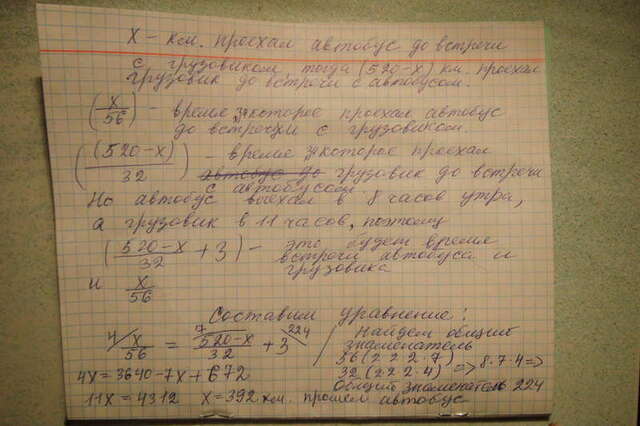 X - км. проехал автобус до встречи
с грузовиком, тогда (520-x) км. проехал
грузовик до встречи с автобусом.
(x/56) - время за которое проехал автобус
до встречи с грузовиком.
((520-x)/32) - время за которое проехал
автобус до грузовик до встречи
с автобусом.
Но автобус выехал в 8 часов утра,
а грузовик в 11 часов, поэтому
(520-x/32 + 3) - это будет время
встречи автобуса и
грузовика
и x/56
Составим уравнение:
4/ x/56 = 7/ 520-x/32 + 3 224
Найдем общий
знаменатель
56 (2 2 2 · 7)
32 (2 2 2 · 4) => 8·7·4 =>
Общий знаменатель 224
4x = 3640 - 7x + 672
11x = 4312 x = 392 км. прошел автобус